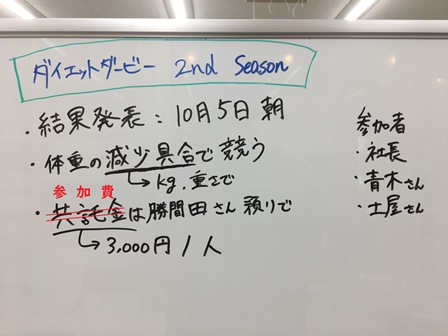 ダイエットダービー 2nd Season
・結果発表：10月5日朝
・体重の減少具合で競う
→kg.重さで
参加費
・共託金は勝間田さん預りで
→3,000円/人
参加者
・社長
・青木さん
・土屋さん